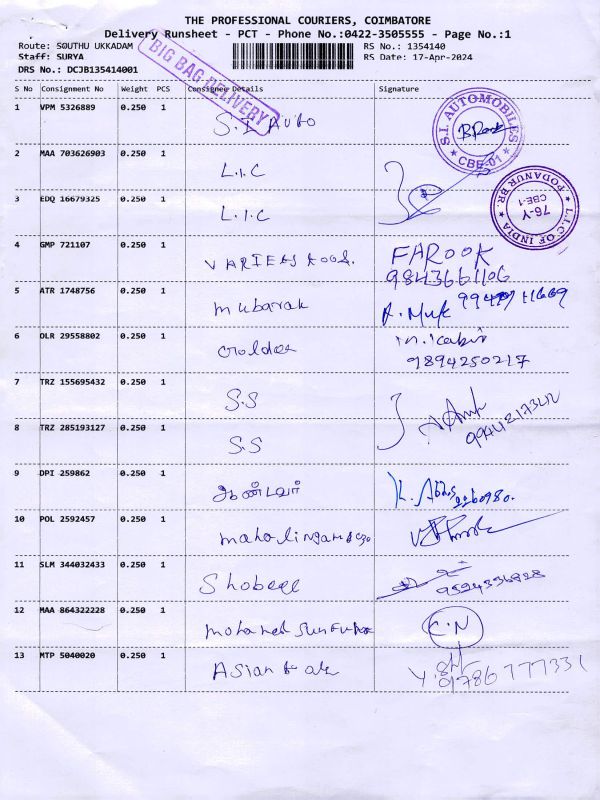 THE PROFESSIONAL COURIERS, COIMBATORE
Delivery Runsheet - PCT - Phone No.:0422-3505555 - Page No.:1
Route: SOUTHU UKKADAM RS No.: 1354140
Staff: SURYA RS Date: 17-Apr-2024
DRS No.: DCJB135414001
BIG BAG DELIVERY
S No Consignment No Weight PCS Consignee Details Signature
1 VPM 5326889 0.250 1 S.I Auto
S.I. AUTOMOBILES CBE-01
2 MAA 703626903 0.250 1 L.I.C
3 EDQ 16679325 0.250 1 L.I.C
L.I.C OF INDIA PODANUR BR. 76-Y CBE-1
4 GMP 721107 0.250 1 FAROOK
9843661106
5 ATR 1748756 0.250 1 mubarak
6 DLR 29558802 0.250 1 Golden m.kabir
9894250217
7 TRZ 155695432 0.250 1 S.S
8 TRZ 285193127 0.250 1 S.S
9 DPI 259862 0.250 1 ஆண்டவர்
10 POL 2592457 0.250 1
11 SLM 344032433 0.250 1
12 MAA 864322228 0.250 1 C.N
13 MTP 5040020 0.250 1 Asian